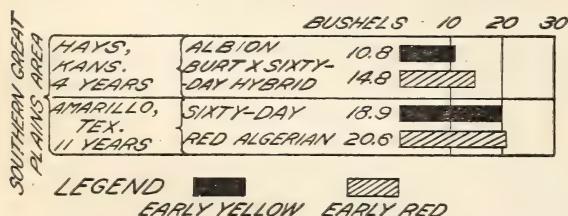 BUSHELS 10 20 30
SOUTHERN GREAT
PLAINS AREA
HAYS,
KANS.
4 YEARS
ALBION 10.8
BURT X SIXTY-
DAY HYBRID 14.8
AMARILLO,
TEX.
11 YEARS
SIXTY-DAY 18.9
RED ALGERIAN 20.6
LEGEND
EARLY YELLOW EARLY RED